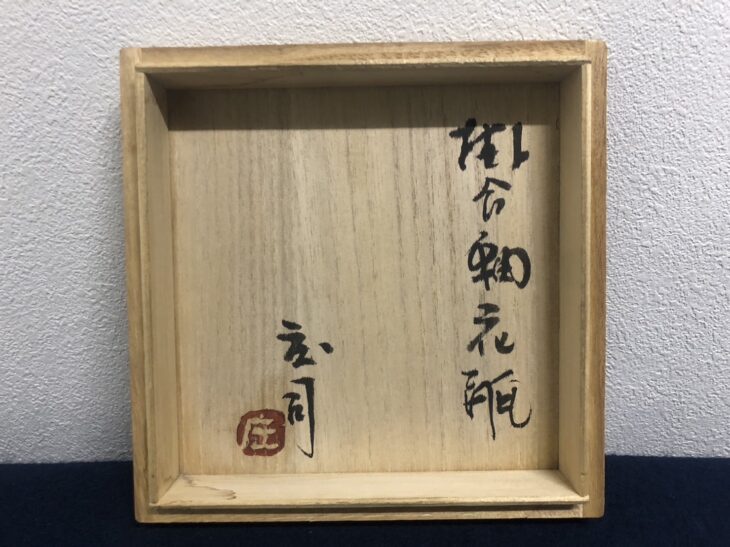 掛合釉花瓶
庄司
庄